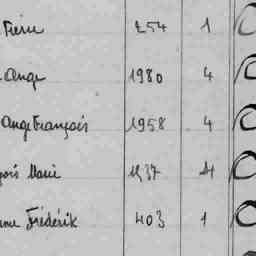 Pierre 254 1
Ange 1980 4
Ange François 1958 4
çois Marie 1937 4
Frédérik 403 1